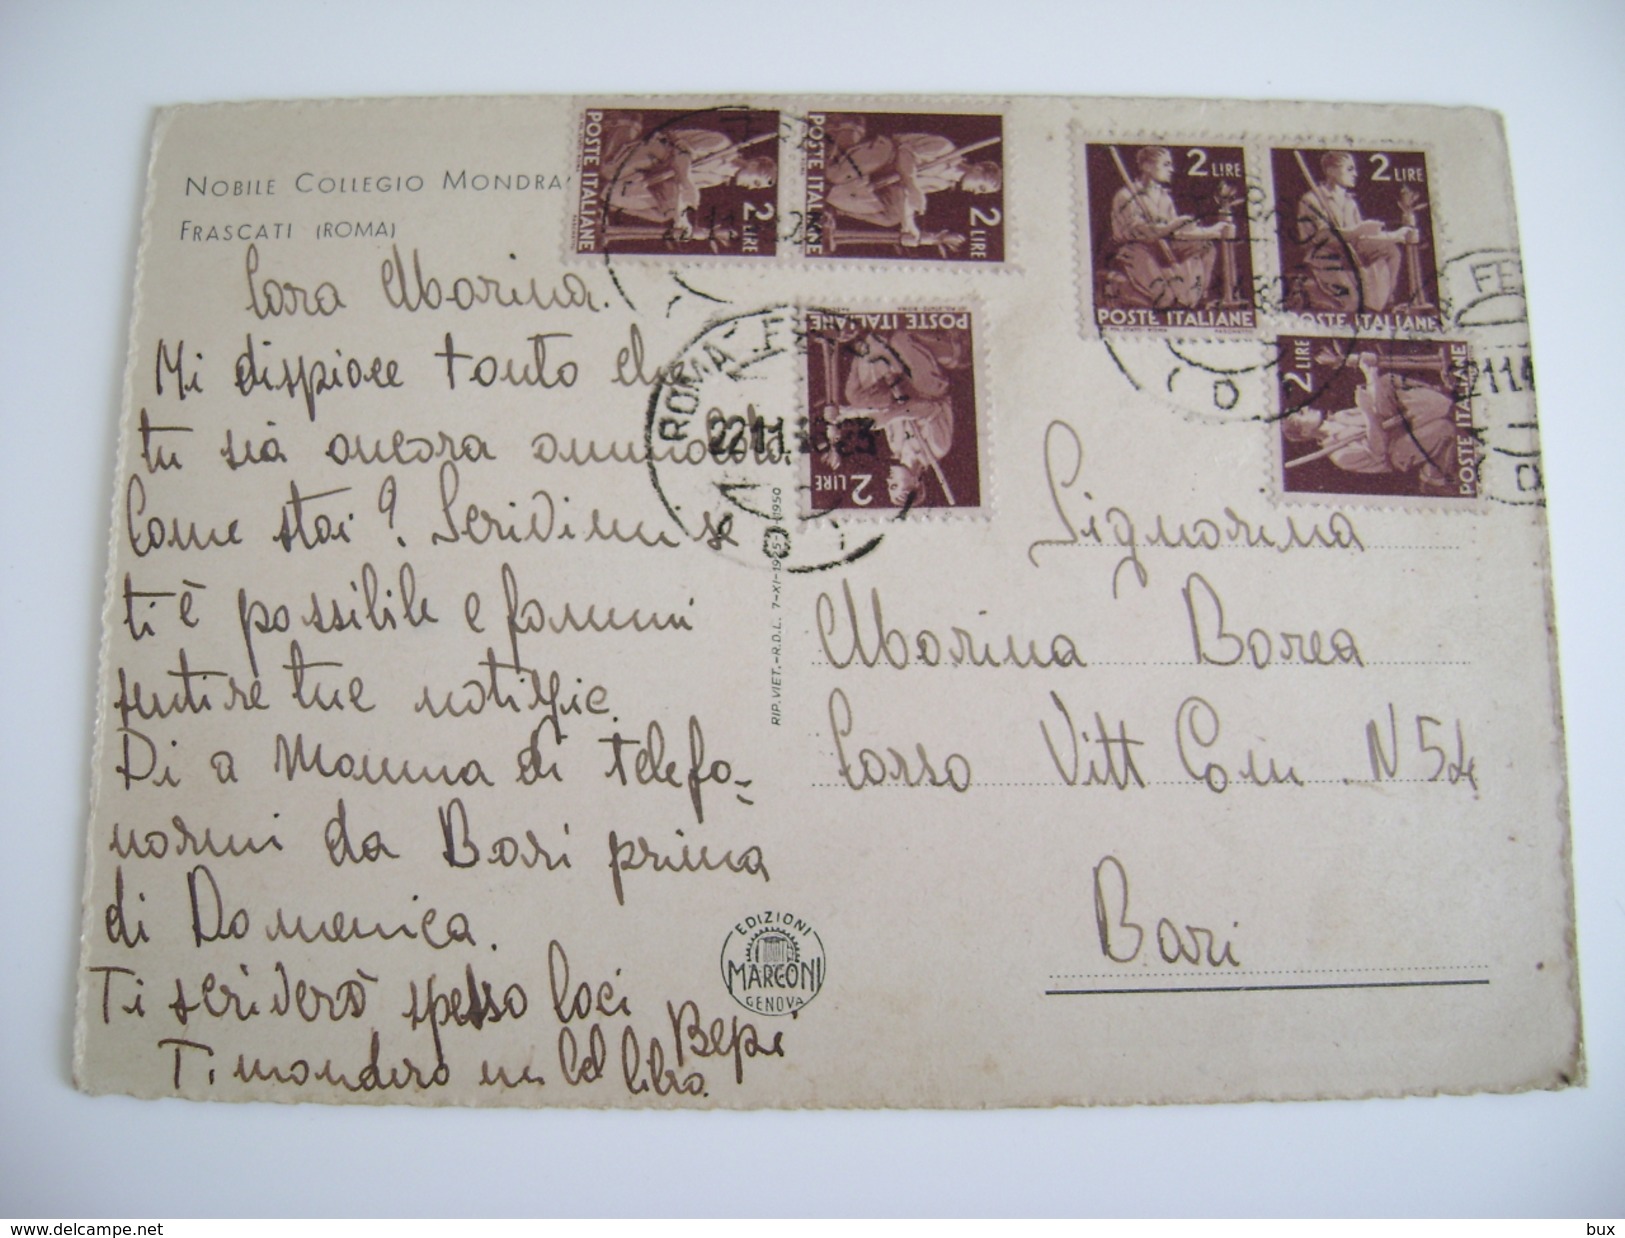 NOBILE COLLEGIO MONDRA
FRASCATI (ROMA)
Cara Marina.
Mi dispiace tanto che
tu sia ancora ammalata.
Come stai? Scrivimi se
ti è possibile e fammi
sentire tue notizie.
Di a Mamma di telefo-
narmi da Bari prima
di Domenica.
Ti scriverò spesso baci
Bepi
Ti manderò un bel libro.
POSTE ITALIANE
2 LIRE
POSTE ITALIANE
2 LIRE
2 LIRE
POSTE ITALIANE
2 LIRE
POSTE ITALIANE
POSTE ITALIANE
2 LIRE
2 LIRE
POSTE ITALIANE
ROMA
22 11
RIP. VIET.-R.D.L. 7-XI-1925-N-1950
EDIZIONI
MARCONI
GENOVA
Signorina
Marina Borea
Corso Vitt Em. N 54
Bari
bux